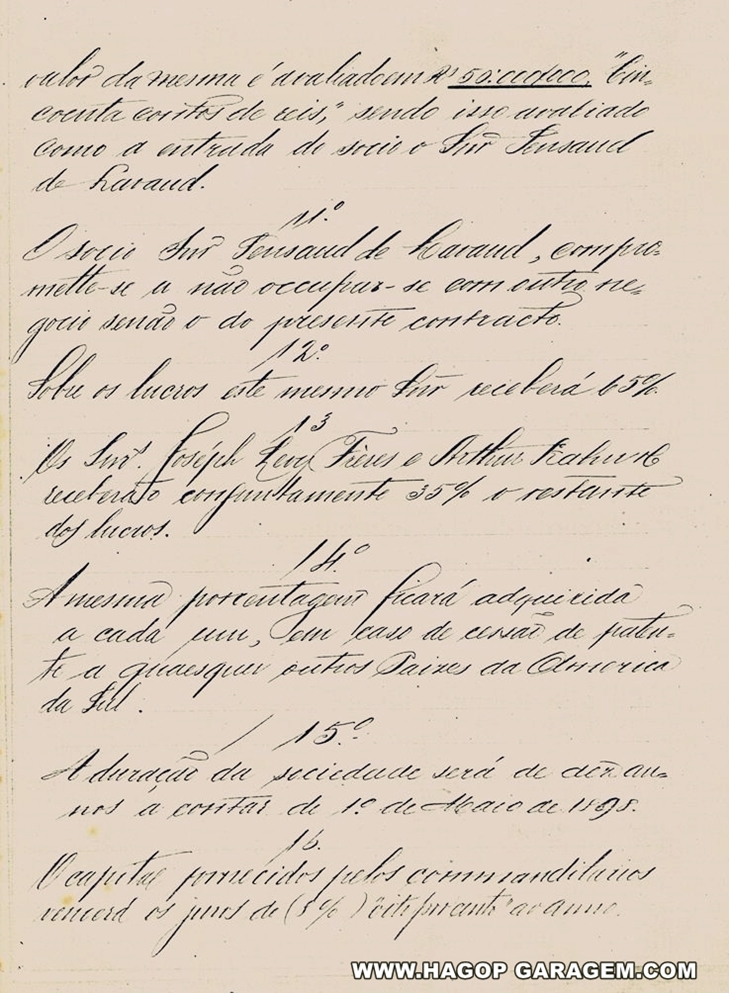 valor da mesma é avaliado em Rs 50:000$000, "Cin-
coenta contos de reis," sendo isso avaliado
como a entrada do socio o Snr Pensaud
de Lavaud.
11º
O socio Snr Pensaud de Lavaud, compro-
mette-se a não occupar-se com outro ne-
gocio senão o do presente contracto.
12º
Sobre os lucros este mesmo Snr receberá 65%
13
Os Snrs. Joseph Levy Frères e Arthur Kahn &
receberão conjunctamente 35% o restante
dos lucros.
14º
A mesma porcentagem ficará adquirida
a cada um, em caso de cessão de paten-
te a quaesquer outros Paizes da America
do Sul.
15º
A duração da sociedade será de dez an-
nos á contar de 1º de Maio de 1898.
16.
O capital fornecidos pelos commanditarios
vencerá os juros de (8%) "oito por cento" ao anno.
WWW.HAGOP GARAGEM.COM